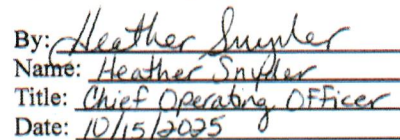 By: Heather Snyder
Name: Heather Snyder
Title: Chief Operating Officer
Date: 10/15/2025